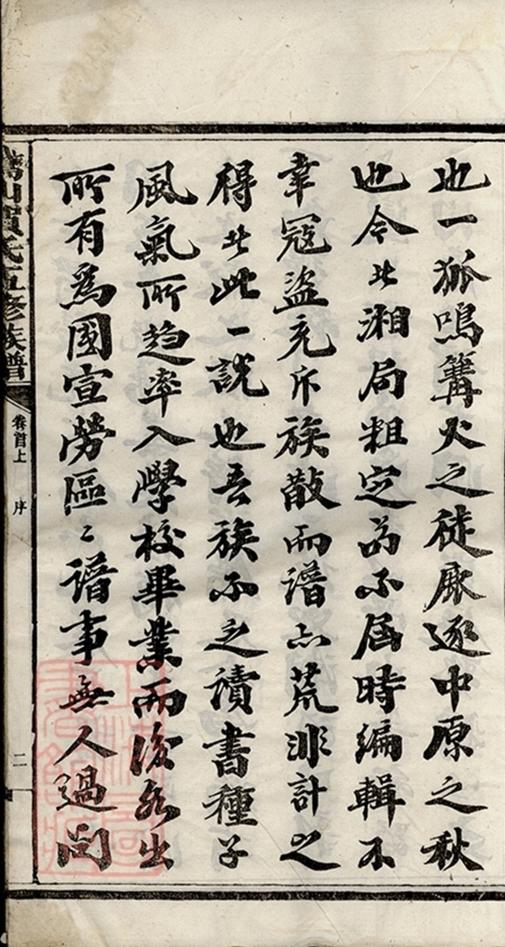 也一狐鳴篝火之徒鹿逐中原之秋
也今者湘局粗定苟不屆時編輯不
幸寇盜充斥族散而譜亦荒非計之
得者此一說也吾族不乏讀書種子
風氣所趨率入學校畢業而後各出
所有為國宣勞區〻譜事無人過問
氏五修族譜
卷首上
序
二